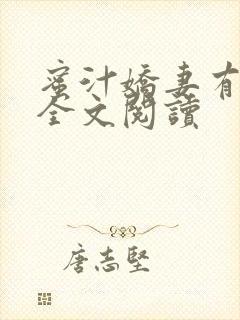 蜜汁嬌妻有
全文閱讀
唐志堅